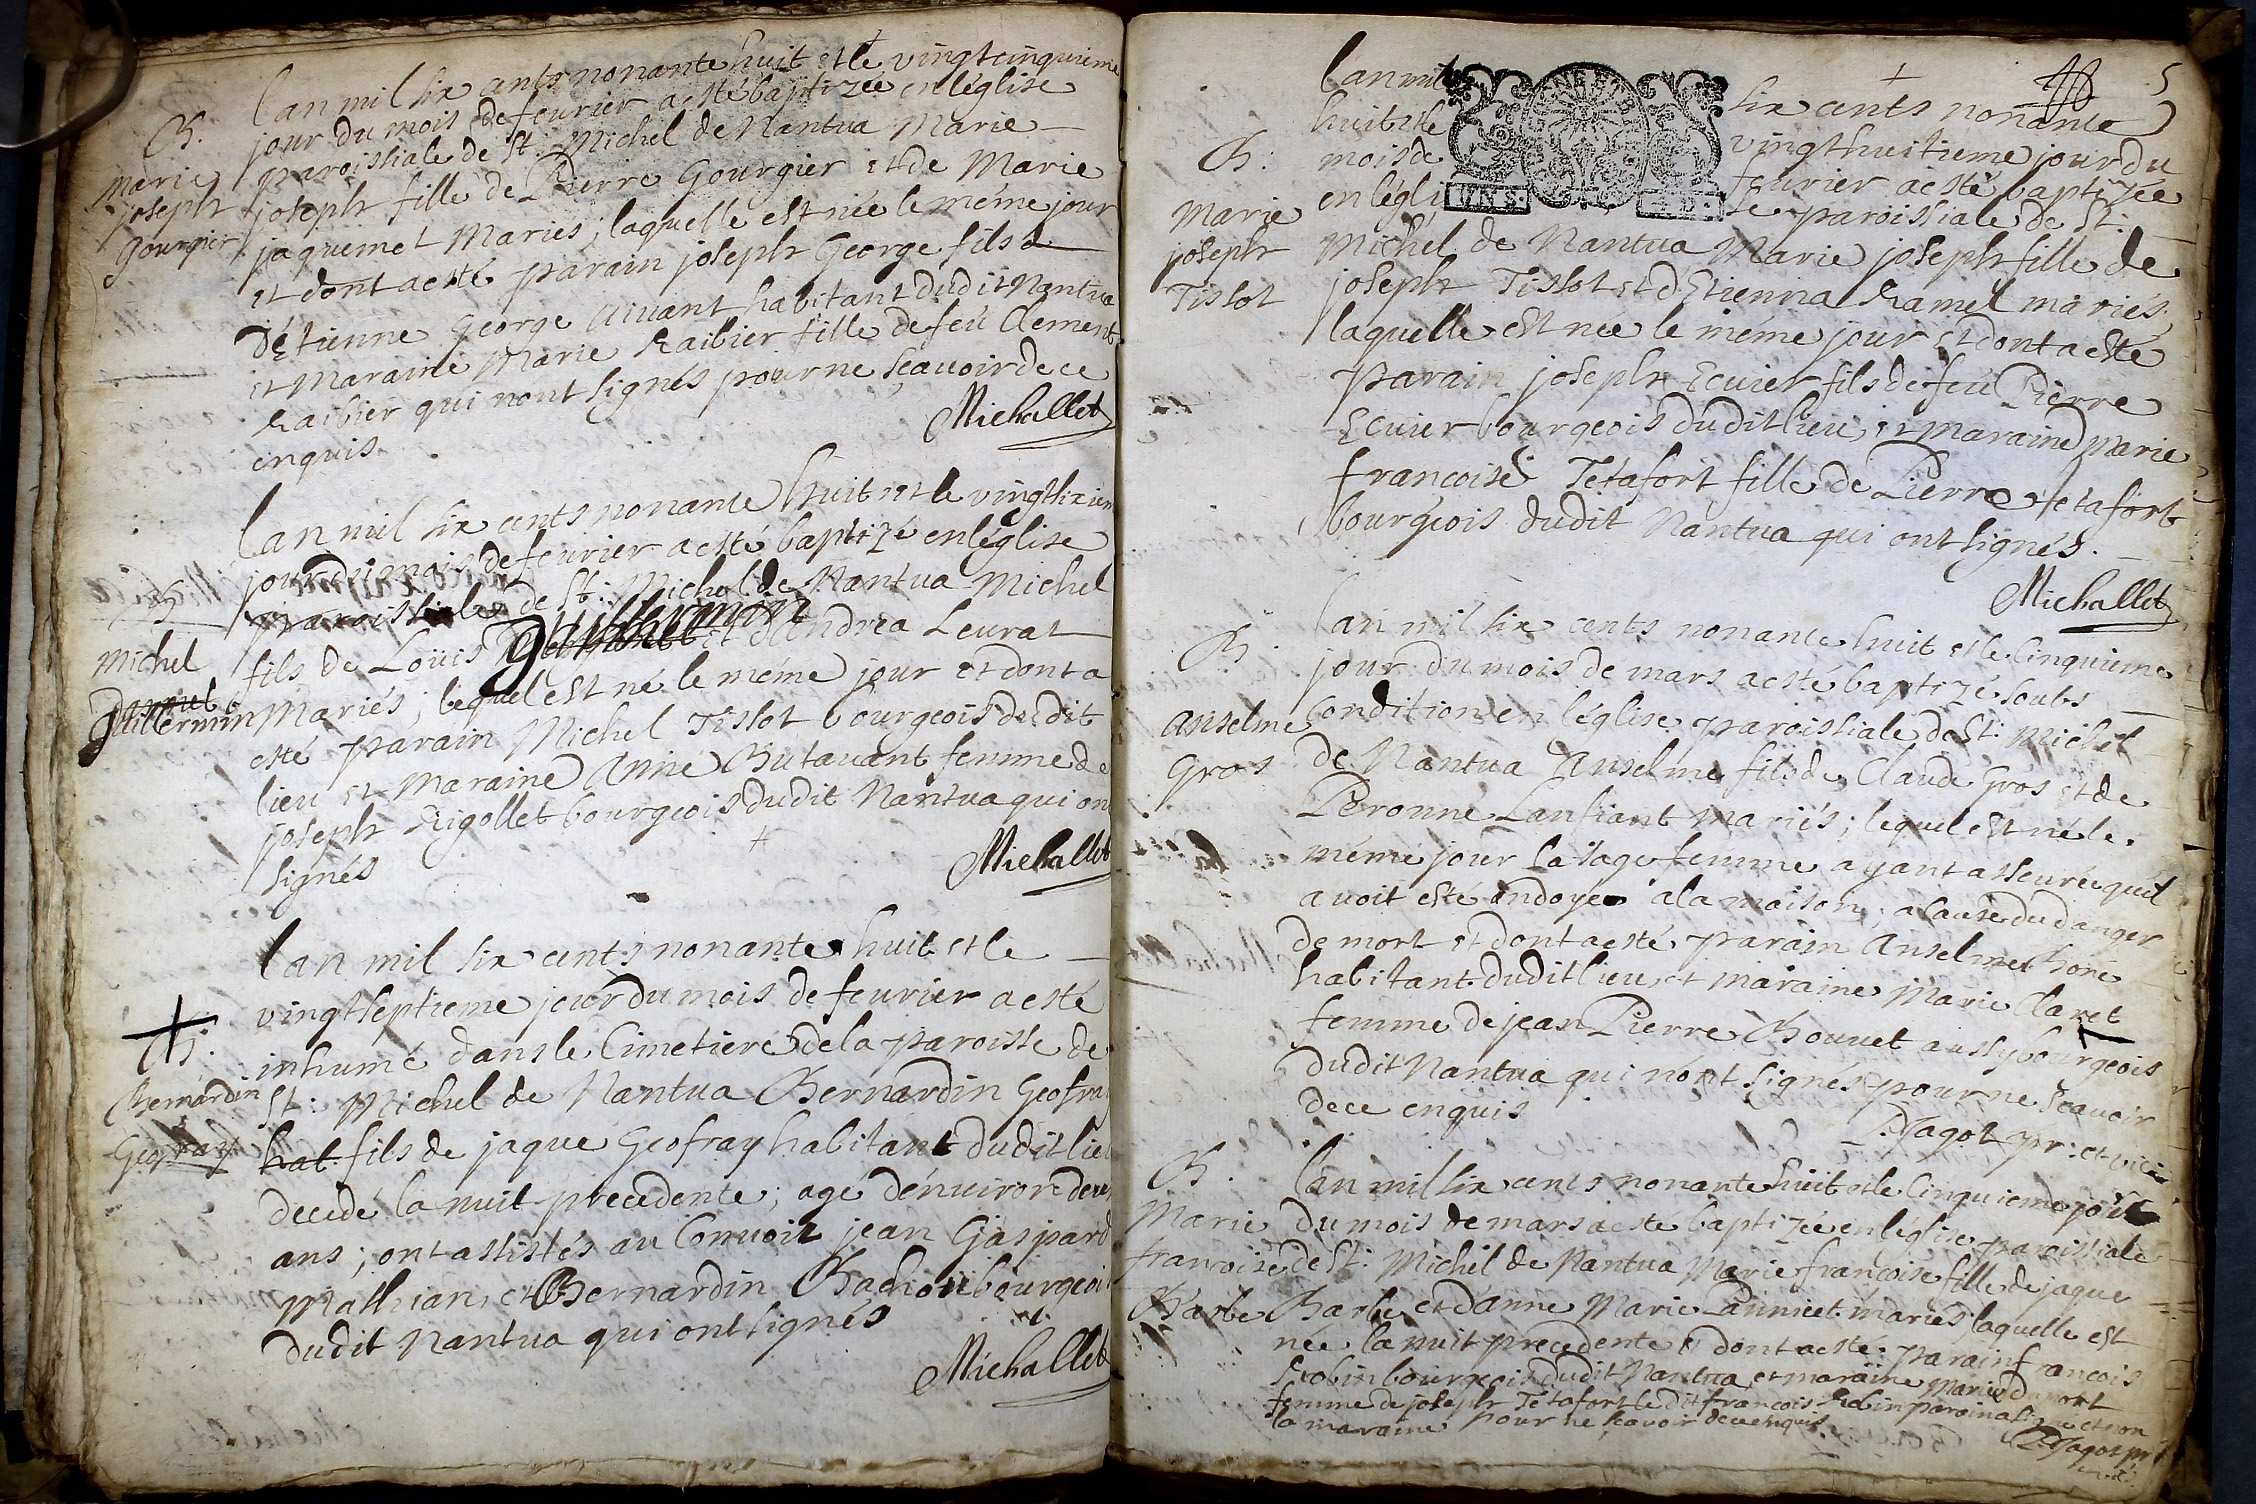 lan mil six cents nonante huit et le vingtcinquieme
jour du mois de feurier a esté baptizée en léglise
paroissiale de St. Michel de Nantua Marie
joseph fille de Pierre Gourgier et de Marie
jaquemet Mariés; laquelle est née le méme jour
et dont a esté parain joseph George fils d
Détienne George viuant habitant dudit Nantua
et Maraine Marie Raibier fille de feu Clement
Raibier qui nont signés pour ne sçauoir de ce
enquis.
Michallet
B.
Marie
joseph
Gourgier
lan mil six cents nonante huit et le vingtsixiem
jour du mois de feurier a esté baptizé en léglise
paroissiale de St. Michel de Nantua Michel
fils de Loüis guillermin et dAndrea Leurat
Mariés; lequel est né le méme jour et dont a
esté parain Michel Tissot bourgeois dudit
lieu et Maraine Anne Butauant femme de
joseph Rigollet bourgeois dudit Nantua qui on
signés
Michallet
B
Michel
guillermin
lan mil six cents nonante huit et le
vingtseptieme jour du mois de feurier a esté
inhumé dans le Cimetiere de la paroisse de
St: Michel de Nantua Bernardin Geofray
hab. fils de jaque Geofray habitant dudit lieu
decedé la nuit precedente; agé dénuiron deux
ans; ont assistés au Conuoit jean Gaspard
Mathian, et Bernardin Bachod bourgeois
dudit Nantua qui ont signés
Michallet
Bernardin
Geofray
5
lan mil six cents nonante
huit et le vingthuitieme jour du
mois de feurier a esté baptizée
en légli se paroissiale de St.
Michel de Nantua Marie joseph fille de
joseph Tissot et dEtienna Ramel mariés,
laquelle est née le méme jour et dont a esté
parain joseph Ecuier fils de feu Pierre
Ecuier bourgeois dudit lieu, et maraine Marie
françoise Tétafort fille de Pierre tetafort
bourgeois dudit Nantua qui ont signés.
Michallet
B.
Marie
joseph
Tissot
lan mil six cents nonante huit et le Cinquieme
jour du mois de mars a esté baptizé soubs
Condition en léglise paroissiale de St: Michel
de Nantua Anselme fils de Claude Gros et de
Peronne Lansiant mariés; lequel est né le
méme jour la sage femme ayant asseurée quil
auoit esté ondoyé a la maison, a cause du danger
de mort et dont a esté parain Anselme Boné
habitant dudit lieu, et maraine Marie Claret
femme de jean Pierre Bouuet aussy bourgeois
dudit Nantua qui nont signés pour ne sçauoir
de ce enquis
P. Jagot pr: et vic:
B.
Anselme
Gros
lan mil six cents nonante huit et le Cinquieme jour
du mois de mars a esté baptizée en léglise paroissiale
de St: Michel de Nantua Marie françoise fille de jaque
Barbe et danne Marie Pannicet mariés laquelle est
née la nuit precedente et dont a esté parain francois
Robin bourgeois dudit Nantua et maraine Marie Dumort
femme de joseph Tétafort ledit francois Robin parain a signé et non
la maraine pour ne scauoir de ce enquis.
P. Jagot pr
B.
Marie
francoise
Barbe